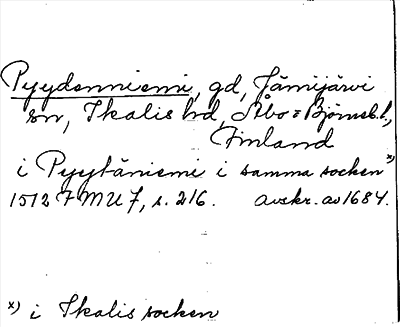 Pyydenniemi, gd, Jämijärvi
sn, Ikalis hd, Åbo = Björneb. l.,
Finland
i Pyytäniemi i samma socken x)
1512 FMU 7, s. 216. avskr. av 1684.
x) i Ikalis socken